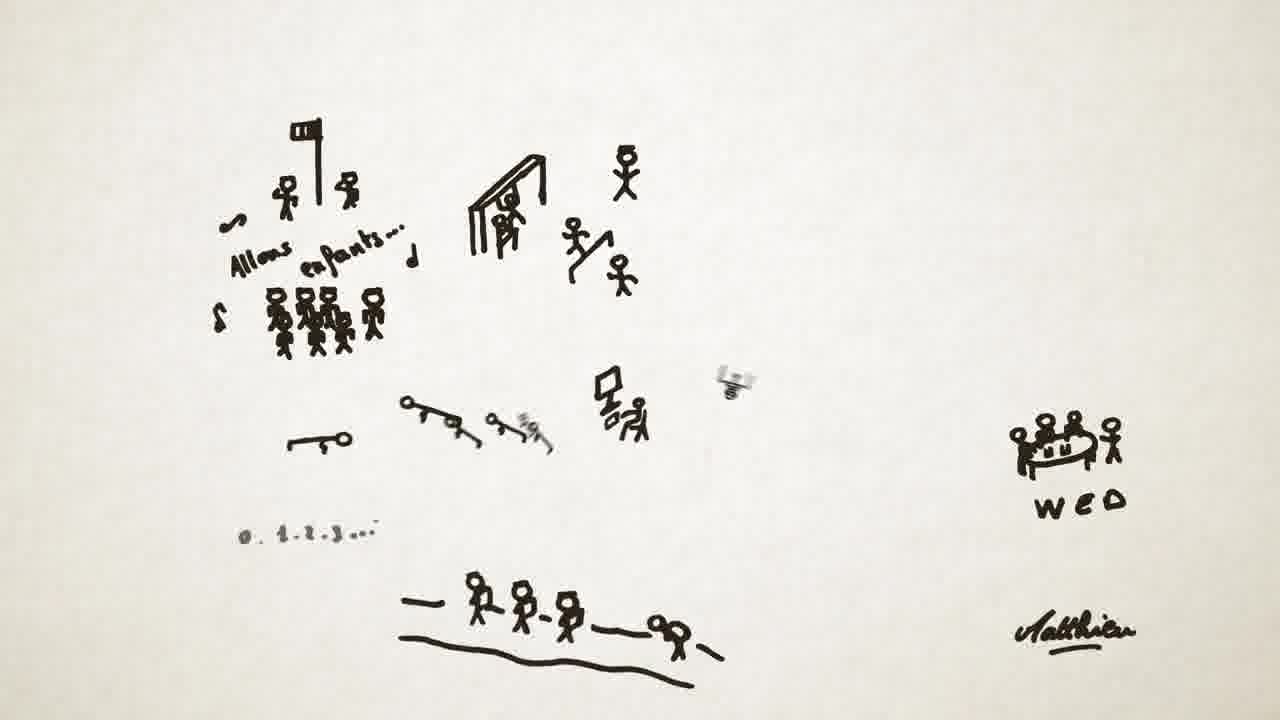 Allons
enfants...
0.1.2.3...
WED
Matthieu